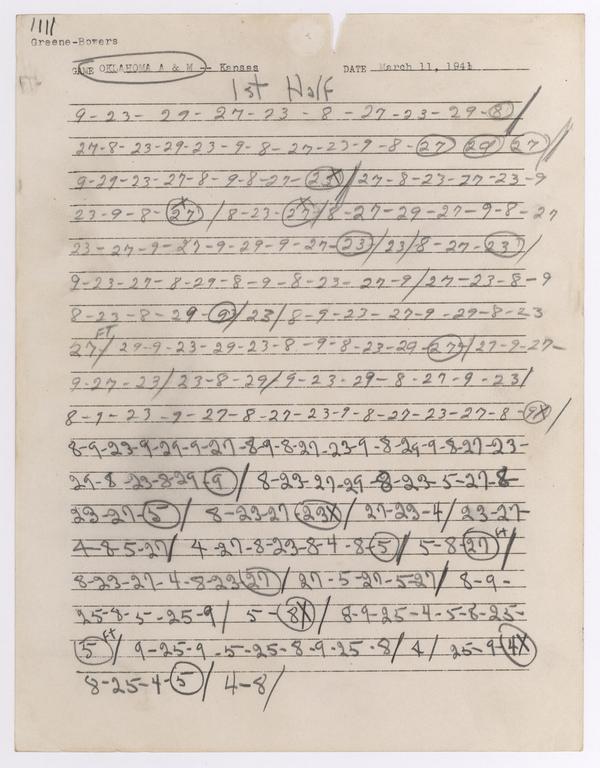 1111
Greene-Bowers
GAME OKLAHOMA A & M -- Kansas DATE March 11, 1941
1st Half
9-23-29-27-23-8-27-23-29-8/
27-8-23-29-23-9-8-27-23-9-8-27 29 27//
9-29-23-27-8-9-8-27-23X/27-8-23-27-23-9
23-9-8-27X/8-23-27X/8-27-29-27-9-8-27
23-27-9-27-9-29-9-27-23/23/8-27-23/
9-23-27-8-29-8-9-8-23-27-9/27-23-8-9
8-23-8-29-9/23/8-9-23-27-9-29-8-23
27 FT/29-9-23-29-23-8-9-8-23-29-27/27-9-27-
9-27-23/23-8-29/9-23-29-8-27-9-23/
8-9-23-9-27-8-27-23-9-8-27-23-27-8-9X/
8-9-23-9-29-9-27-8-9-8-27-23-9-8-29-9-8-27-23-
29-8-23-8-29-9/8-23-27-29-8-23-5-27-8-
23-27-5/8-23-27-23X/27-23-4/23-27-
4-8-5-27/4-27-8-23-8-4-8-5/5-8-27 ft/
8-23-27-4-8-23-27/27-5-27-5-27/8-9-
25-8-5-25-9/5-8X/8-9-25-4-5-8-25-
5 ft/9-25-9-5-25-8-9-25-8/4/25-9-4X
8-25-4-5/4-8/